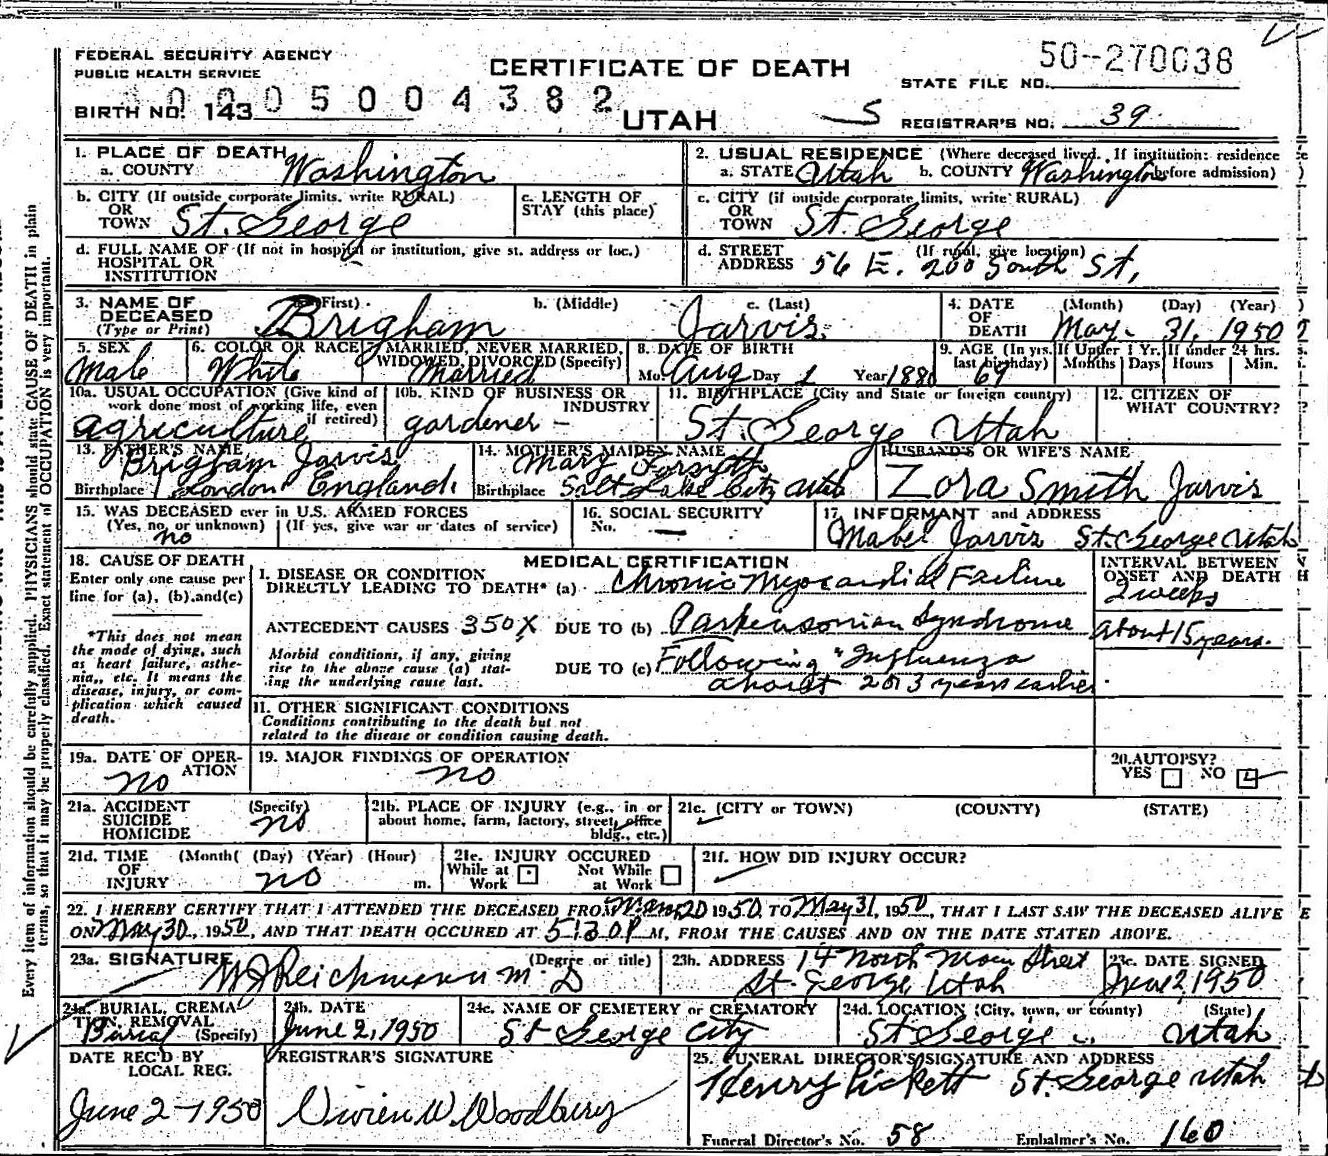 50--270038
FEDERAL SECURITY AGENCY
PUBLIC HEALTH SERVICE
CERTIFICATE OF DEATH
STATE FILE NO.
0005004382
BIRTH NO. 143
UTAH
S
REGISTRAR'S NO. 39
1. PLACE OF DEATH
a. COUNTY Washington
2. USUAL RESIDENCE (Where deceased lived. If institution: residence before admission)
a. STATE Utah b. COUNTY Washington
b. CITY (If outside corporate limits, write RURAL)
OR TOWN St. George
c. LENGTH OF STAY (this place)
c. CITY (if outside corporate limits, write RURAL)
OR TOWN St. George
d. FULL NAME OF (If not in hospital or institution, give st. address or loc.)
HOSPITAL OR
INSTITUTION
d. STREET (If rural, give location)
ADDRESS 56 E. 200 South St.
3. NAME OF DECEASED
(Type or Print)
a. (First) b. (Middle) c. (Last)
Brigham Jarvis
4. DATE OF DEATH (Month) (Day) (Year)
May 31, 1950
5. SEX
Male
6. COLOR OR RACE
White
7. MARRIED, NEVER MARRIED, WIDOWED, DIVORCED (Specify)
Married
8. DATE OF BIRTH
Mo. Aug Day Year 1880
9. AGE (In yrs. last birthday) 69
If Under 1 Yr. Months Days
If under 24 hrs. Hours Min.
10a. USUAL OCCUPATION (Give kind of work done most of working life, even if retired)
agriculture
10b. KIND OF BUSINESS OR INDUSTRY
gardener -
11. BIRTHPLACE (City and State or foreign country)
St. George Utah
12. CITIZEN OF WHAT COUNTRY?
13. FATHER'S NAME
Brigham Jarvis
Birthplace London England.
14. MOTHER'S MAIDEN NAME
Mary Forsyth
Birthplace Salt Lake City Utah
HUSBAND'S OR WIFE'S NAME
Zora Smith Jarvis
15. WAS DECEASED ever in U.S. ARMED FORCES
(Yes, no, or unknown) (If yes, give war or dates of service)
no
16. SOCIAL SECURITY
No. —
17. INFORMANT and ADDRESS
Mabel Jarvis St. George Utah
18. CAUSE OF DEATH
Enter only one cause per line for (a), (b), and (c)
*This does not mean the mode of dying, such as heart failure, asthenia, etc. It means the disease, injury, or complication which caused death.
MEDICAL CERTIFICATION
I. DISEASE OR CONDITION
DIRECTLY LEADING TO DEATH* (a) Chronic Myocardial Failure
INTERVAL BETWEEN ONSET AND DEATH
2 weeks
ANTECEDENT CAUSES 350X DUE TO (b) Parkensonian Syndrome
about 15 years.
Morbid conditions, if any, giving rise to the above cause (a) stating the underlying cause last.
DUE TO (c) Following "Influenza
about 2 or 3 years earlier
II. OTHER SIGNIFICANT CONDITIONS
Conditions contributing to the death but not related to the disease or condition causing death.
19a. DATE OF OPERATION
no
19. MAJOR FINDINGS OF OPERATION
no
20. AUTOPSY?
YES NO
21a. ACCIDENT SUICIDE HOMICIDE (Specify)
no
21b. PLACE OF INJURY (e.g., in or about home, farm, factory, street, office bldg., etc.)
21c. (CITY or TOWN) (COUNTY) (STATE)
21d. TIME OF INJURY (Month( (Day) (Year) (Hour) m.
no
21e. INJURY OCCURED
While at Work Not While at Work
21f. HOW DID INJURY OCCUR?
22. I HEREBY CERTIFY THAT I ATTENDED THE DECEASED FROM 20 1950, TO May 31, 1950, THAT I LAST SAW THE DECEASED ALIVE
ON May 30, 1950, AND THAT DEATH OCCURED AT 5:30 P M, FROM THE CAUSES AND ON THE DATE STATED ABOVE.
23a. SIGNATURE (Degree or title)
W J Reichmann M.D
23b. ADDRESS 14 North Main Street
St. George, Utah
23c. DATE SIGNED
June 2, 1950
24a. BURIAL, CREMATION, REMOVAL (Specify)
Burial
24b. DATE
June 2, 1950
24c. NAME OF CEMETERY or CREMATORY
St George City
24d. LOCATION (City, town, or county) (State)
St George Utah
DATE REC'D BY LOCAL REG.
June 2-1950
REGISTRAR'S SIGNATURE
Vivien W. Woodbury
25. FUNERAL DIRECTOR'S SIGNATURE AND ADDRESS
Henry Pickett St. George Utah
Funeral Director's No. 58 Embalmer's No. 160
Every item of information should be carefully supplied. PHYSICIANS should state CAUSE OF DEATH in plain
terms, so that it may be properly classified. Exact statement of OCCUPATION is very important.